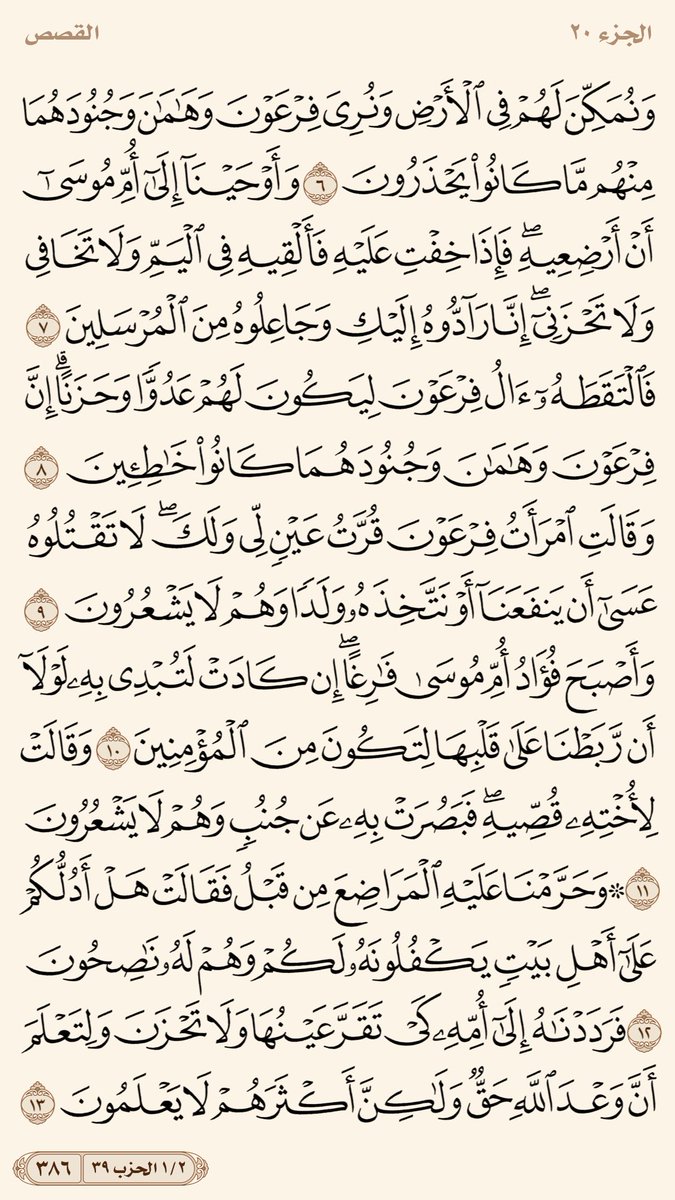 الجزء ٢٠ القصص
وَنُمَكِّنَ لَهُمۡ فِي ٱلۡأَرۡضِ وَنُرِيَ فِرۡعَوۡنَ وَهَٰمَٰنَ وَجُنُودَهُمَا
مِنۡهُم مَّا كَانُواْ يَحۡذَرُونَ ٦ وَأَوۡحَيۡنَآ إِلَىٰٓ أُمِّ مُوسَىٰٓ
أَنۡ أَرۡضِعِيهِۖ فَإِذَا خِفۡتِ عَلَيۡهِ فَأَلۡقِيهِ فِي ٱلۡيَمِّ وَلَا تَخَافِي
وَلَا تَحۡزَنِيٓۖ إِنَّا رَآدُّوهُ إِلَيۡكِ وَجَاعِلُوهُ مِنَ ٱلۡمُرۡسَلِينَ ٧
فَٱلۡتَقَطَهُۥٓ ءَالُ فِرۡعَوۡنَ لِيَكُونَ لَهُمۡ عَدُوّٗا وَحَزَنًاۗ إِنَّ
فِرۡعَوۡنَ وَهَٰمَٰنَ وَجُنُودَهُمَا كَانُواْ خَٰطِـِٔينَ ٨
وَقَالَتِ ٱمۡرَأَتُ فِرۡعَوۡنَ قُرَّتُ عَيۡنٖ لِّي وَلَكَۖ لَا تَقۡتُلُوهُ
عَسَىٰٓ أَن يَنفَعَنَآ أَوۡ نَتَّخِذَهُۥ وَلَدٗا وَهُمۡ لَا يَشۡعُرُونَ ٩
وَأَصۡبَحَ فُؤَادُ أُمِّ مُوسَىٰ فَٰرِغًاۖ إِن كَادَتۡ لَتُبۡدِي بِهِۦ لَوۡلَآ
أَن رَّبَطۡنَا عَلَىٰ قَلۡبِهَا لِتَكُونَ مِنَ ٱلۡمُؤۡمِنِينَ ١٠ وَقَالَتۡ
لِأُخۡتِهِۦ قُصِّيهِۖ فَبَصُرَتۡ بِهِۦ عَن جُنُبٖ وَهُمۡ لَا يَشۡعُرُونَ
١١ ۞ وَحَرَّمۡنَا عَلَيۡهِ ٱلۡمَرَاضِعَ مِن قَبۡلُ فَقَالَتۡ هَلۡ أَدُلُّكُمۡ
عَلَىٰٓ أَهۡلِ بَيۡتٖ يَكۡفُلُونَهُۥ لَكُمۡ وَهُمۡ لَهُۥ نَٰصِحُونَ
١٢ فَرَدَدۡنَٰهُ إِلَىٰٓ أُمِّهِۦ كَيۡ تَقَرَّ عَيۡنُهَا وَلَا تَحۡزَنَ وَلِتَعۡلَمَ
أَنَّ وَعۡدَ ٱللَّهِ حَقّٞ وَلَٰكِنَّ أَكۡثَرَهُمۡ لَا يَعۡلَمُونَ ١٣
١/٢ الحزب ٣٩ ٣٨٦